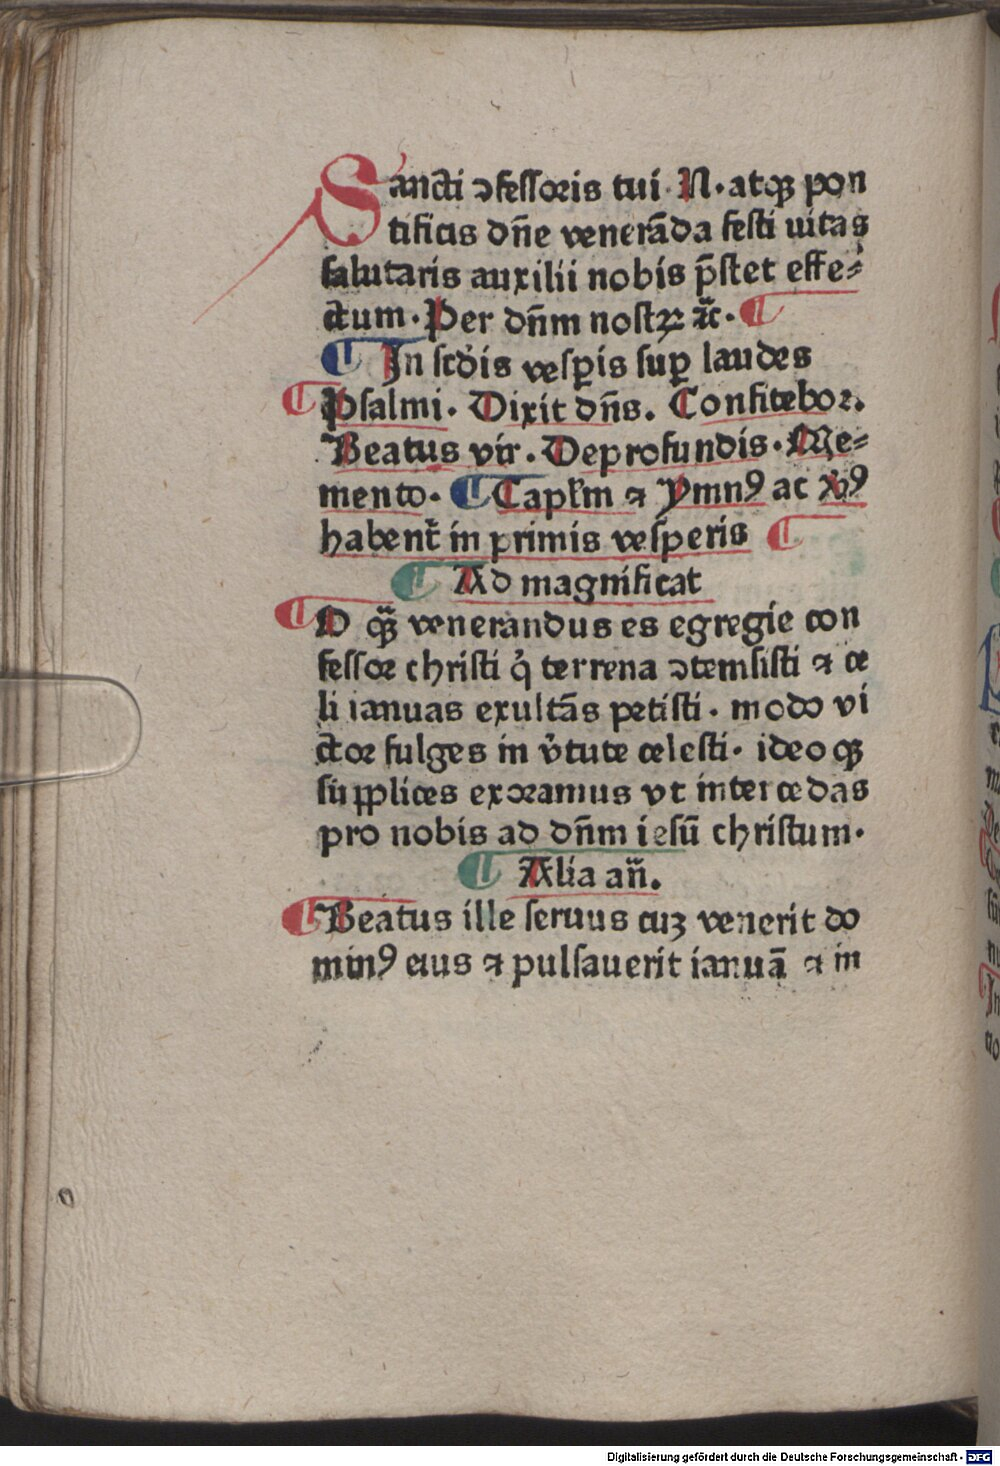 Sancti ↄfessoris tui N. atqꝫ pon
tificis dn̄e venerāda festi uitas
salutaris auxilii nobis p̄stet effe⸗
ctum. Per dn̄m nostꝝ ꝛc̄.
In scd̓is vesꝑis suꝑ laudes
Psalmi. Dixit dn̄s. Confitebor.
Beatus vir. Deprofundis. Me⸗
mento. Capl̓m ⁊ Ymnꝰ ac v̓ꝰ
habent̓ in primis vesperis
Ad magnificat
O qꝫ̄ venerandus es egregie con
fessor christi q̓ terrena ↄtemsisti ⁊ ce
li ianuas exultās petisti. modo vi
ctor fulges in v̓tute celesti. ideo qꝫ
supplices exoramus vt intercedas
pro nobis ad dn̄m iesū christum.
Alia an̄.
Beatus ille seruus cuꝫ venerit do
minꝰ eius ⁊ pulsauerit ianuā ⁊ in
Digitalisierung gefördert durch die Deutsche Forschungsgemeinschaft - DFG